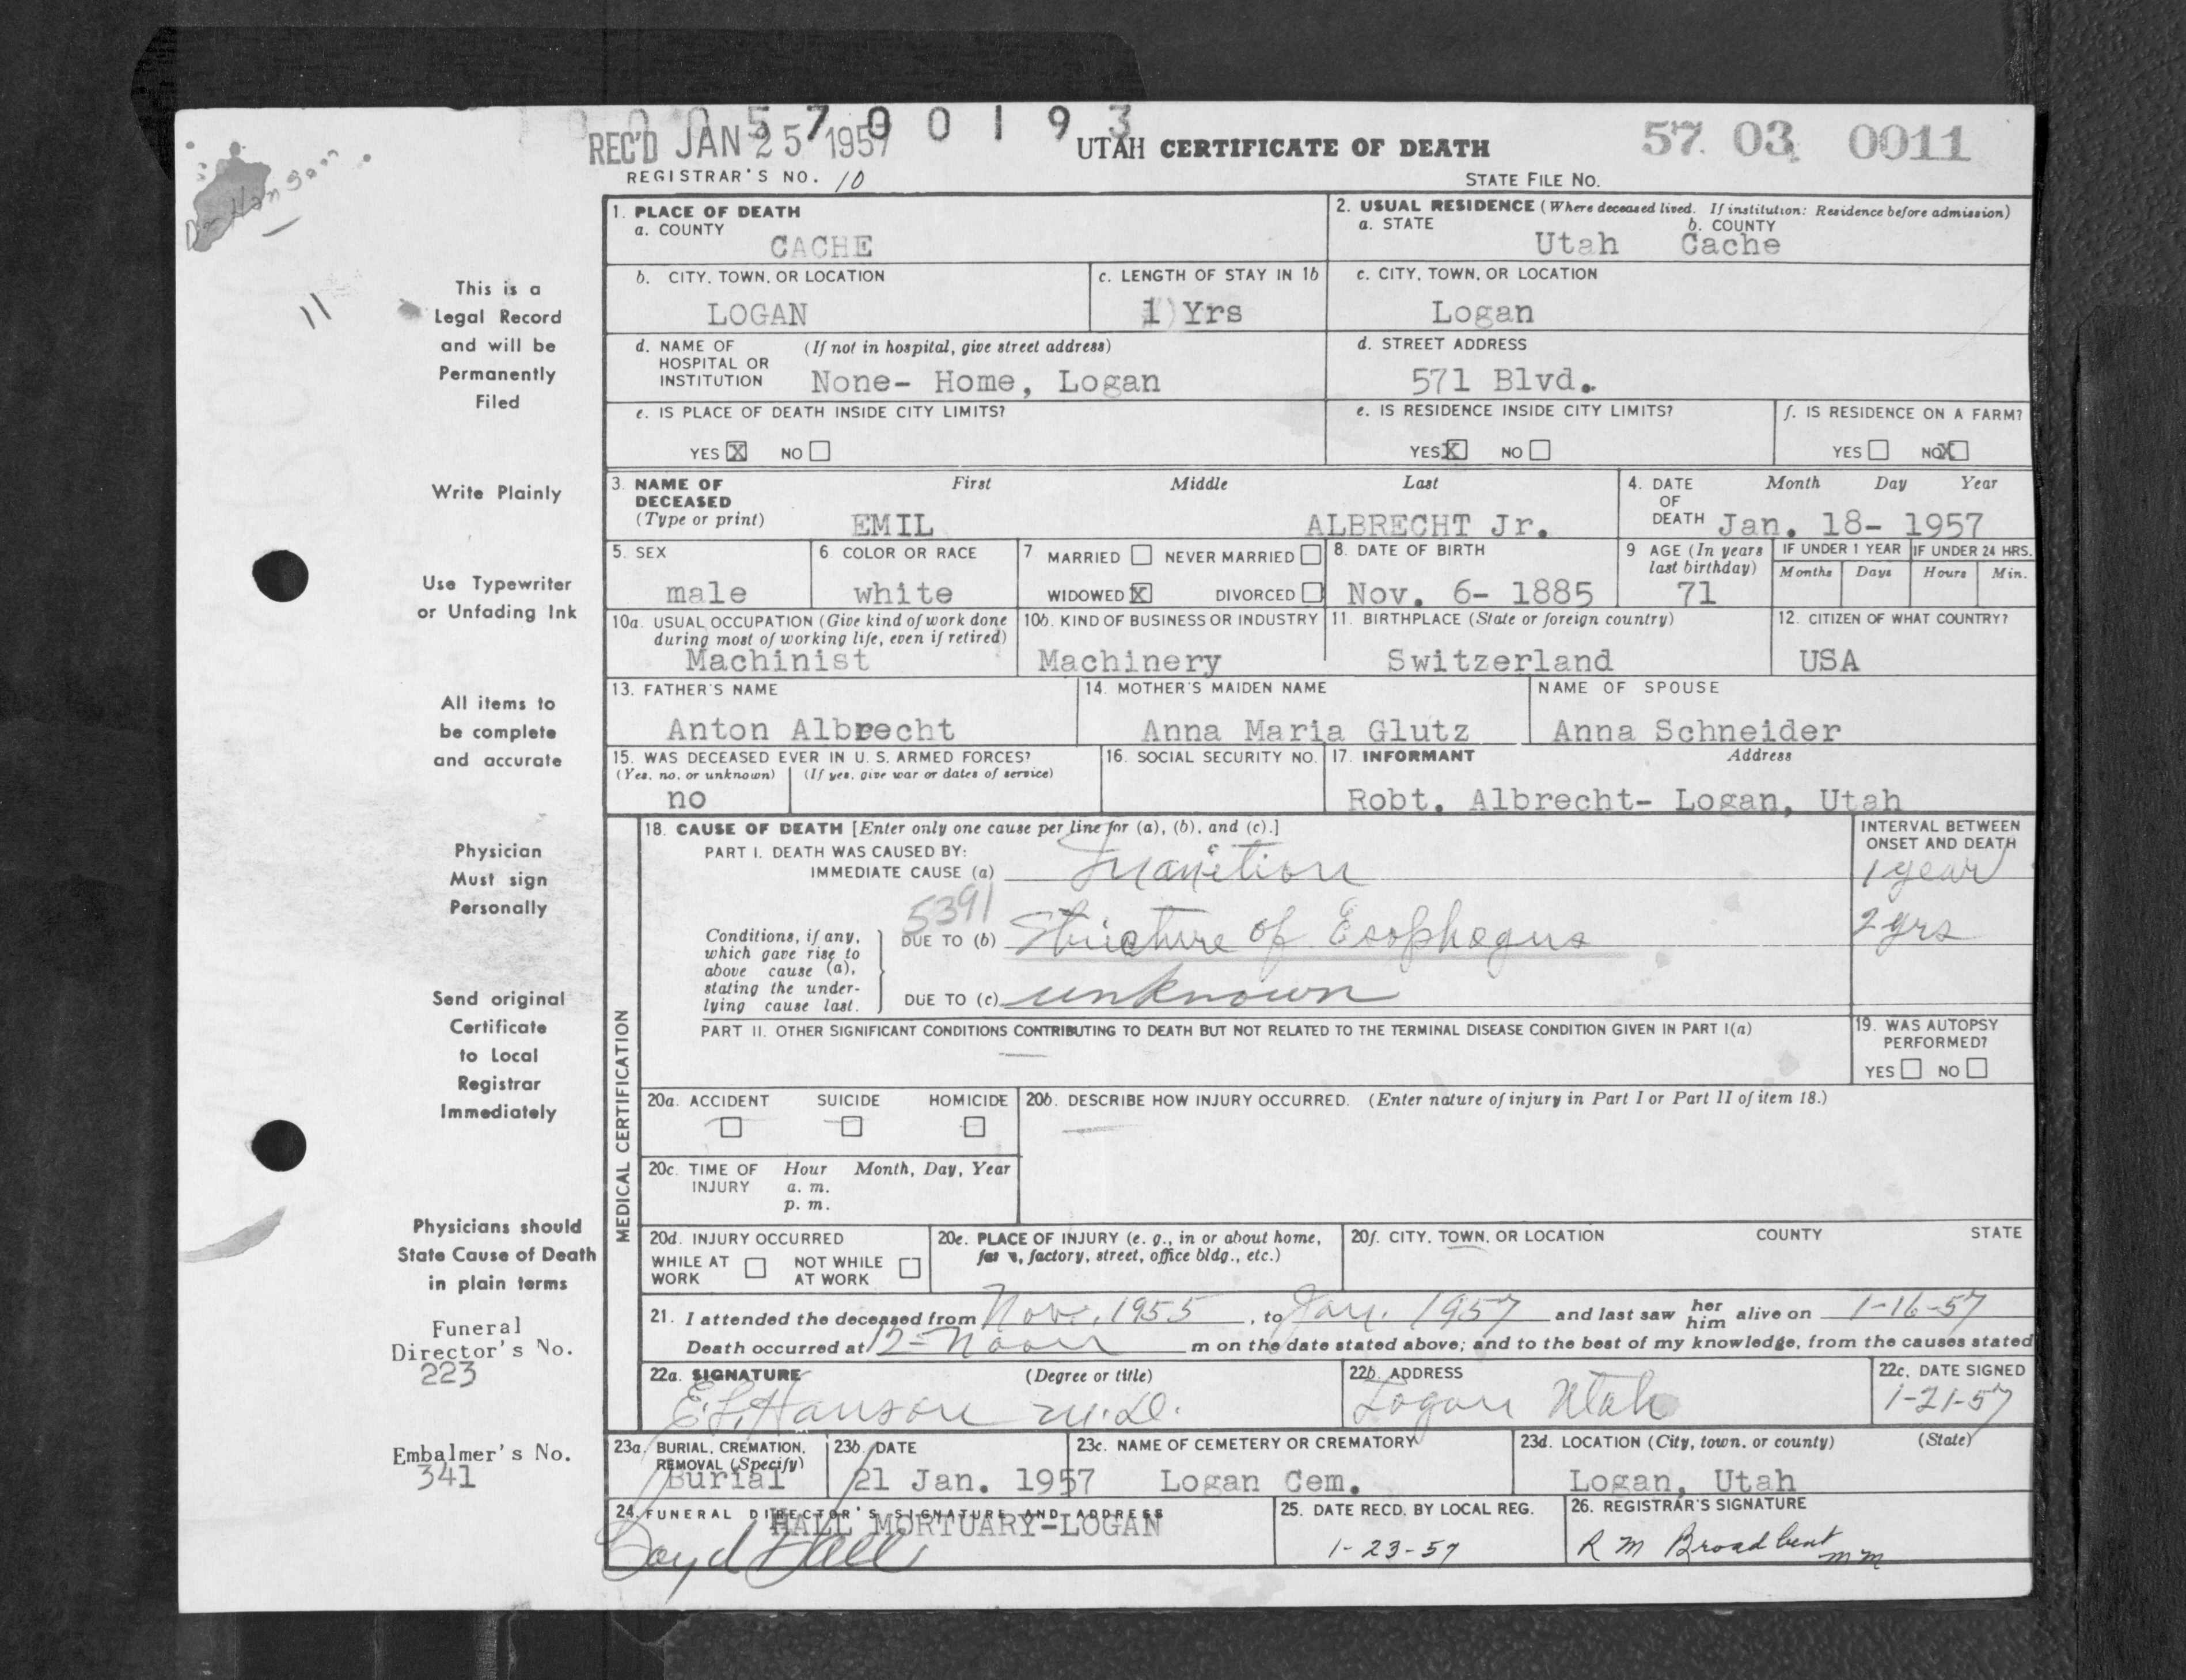 00057 00193
REC'D JAN 25 1957 UTAH CERTIFICATE OF DEATH 57 03 0011
REGISTRAR'S NO. 10 STATE FILE NO.
Dr Hanson
11
1. PLACE OF DEATH
a. COUNTY
CACHE
2. USUAL RESIDENCE (Where deceased lived. If institution: Residence before admission)
a. STATE b. COUNTY
Utah Cache
b. CITY, TOWN, OR LOCATION
LOGAN
c. LENGTH OF STAY IN 1b
1 Yrs
c. CITY, TOWN, OR LOCATION
Logan
d. NAME OF (If not in hospital, give street address)
HOSPITAL OR
INSTITUTION None- Home, Logan
d. STREET ADDRESS
571 Blvd.
e. IS PLACE OF DEATH INSIDE CITY LIMITS?
YES X NO
e. IS RESIDENCE INSIDE CITY LIMITS?
YES X NO
f. IS RESIDENCE ON A FARM?
YES NO X
3. NAME OF First Middle Last
DECEASED
(Type or print) EMIL ALBRECHT Jr.
4. DATE Month Day Year
OF
DEATH Jan. 18- 1957
5. SEX
male
6 COLOR OR RACE
white
7 MARRIED NEVER MARRIED
WIDOWED X DIVORCED
8. DATE OF BIRTH
Nov. 6- 1885
9 AGE (In years
last birthday)
71
IF UNDER 1 YEAR IF UNDER 24 HRS.
Months Days Hours Min.
10a. USUAL OCCUPATION (Give kind of work done
during most of working life, even if retired)
Machinist
10b. KIND OF BUSINESS OR INDUSTRY
Machinery
11. BIRTHPLACE (State or foreign country)
Switzerland
12. CITIZEN OF WHAT COUNTRY?
USA
13. FATHER'S NAME
Anton Albrecht
14. MOTHER'S MAIDEN NAME
Anna Maria Glutz
NAME OF SPOUSE
Anna Schneider
15. WAS DECEASED EVER IN U. S. ARMED FORCES?
(Yes, no, or unknown) (If yes, give war or dates of service)
no
16. SOCIAL SECURITY NO.
17. INFORMANT Address
Robt. Albrecht- Logan, Utah
MEDICAL CERTIFICATION
18. CAUSE OF DEATH [Enter only one cause per line for (a), (b), and (c).]
PART I. DEATH WAS CAUSED BY:
IMMEDIATE CAUSE (a) Inanition
INTERVAL BETWEEN
ONSET AND DEATH
1 year
5391
Conditions, if any,
which gave rise to
above cause (a),
stating the under-
lying cause last.
DUE TO (b) Stricture of Esophogus
2 yrs
DUE TO (c) unknown
PART II. OTHER SIGNIFICANT CONDITIONS CONTRIBUTING TO DEATH BUT NOT RELATED TO THE TERMINAL DISEASE CONDITION GIVEN IN PART I(a)
19. WAS AUTOPSY
PERFORMED?
YES NO
20a. ACCIDENT SUICIDE HOMICIDE
20b. DESCRIBE HOW INJURY OCCURRED. (Enter nature of injury in Part I or Part II of item 18.)
20c. TIME OF Hour Month, Day, Year
INJURY a. m.
p. m.
20d. INJURY OCCURRED
WHILE AT NOT WHILE
WORK AT WORK
20e. PLACE OF INJURY (e. g., in or about home,
factory, street, office bldg., etc.)
20f. CITY, TOWN, OR LOCATION COUNTY STATE
21. I attended the deceased from Nov. 1955, to Jan. 1957 and last saw her him alive on 1-16-57
Death occurred at 12- Noon m on the date stated above; and to the best of my knowledge, from the causes stated
22a. SIGNATURE (Degree or title)
E. L. Hanson M.D.
22b. ADDRESS
Logan Utah
22c. DATE SIGNED
1-21-57
23a. BURIAL, CREMATION,
REMOVAL (Specify)
Burial
23b. DATE
21 Jan. 1957
23c. NAME OF CEMETERY OR CREMATORY
Logan Cem.
23d. LOCATION (City, town, or county) (State)
Logan, Utah
24. FUNERAL DIRECTOR'S SIGNATURE AND ADDRESS
HALL MORTUARY-LOGAN
Boyd Hall
25. DATE RECD. BY LOCAL REG.
1-23-57
26. REGISTRAR'S SIGNATURE
R M Broadbent
mm
This is a
Legal Record
and will be
Permanently
Filed
Write Plainly
Use Typewriter
or Unfading Ink
All items to
be complete
and accurate
Physician
Must sign
Personally
Send original
Certificate
to Local
Registrar
Immediately
Physicians should
State Cause of Death
in plain terms
Funeral
Director's No.
223
Embalmer's No.
341